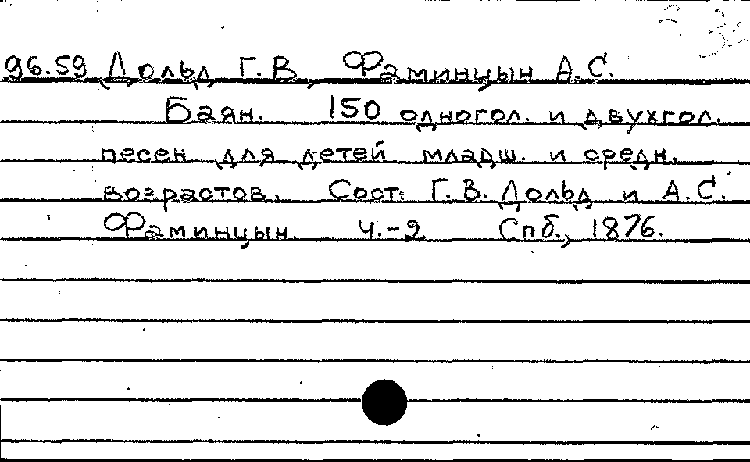 96.59 Дольд Г.В., Фаминцын А.С.
Баян. 150 одногол. и двухгол.
песен для детей младш. и средн.
возрастов. Сост: Г.В. Дольд и А.С.
Фаминцын. Ч.-2 Спб., 1876.